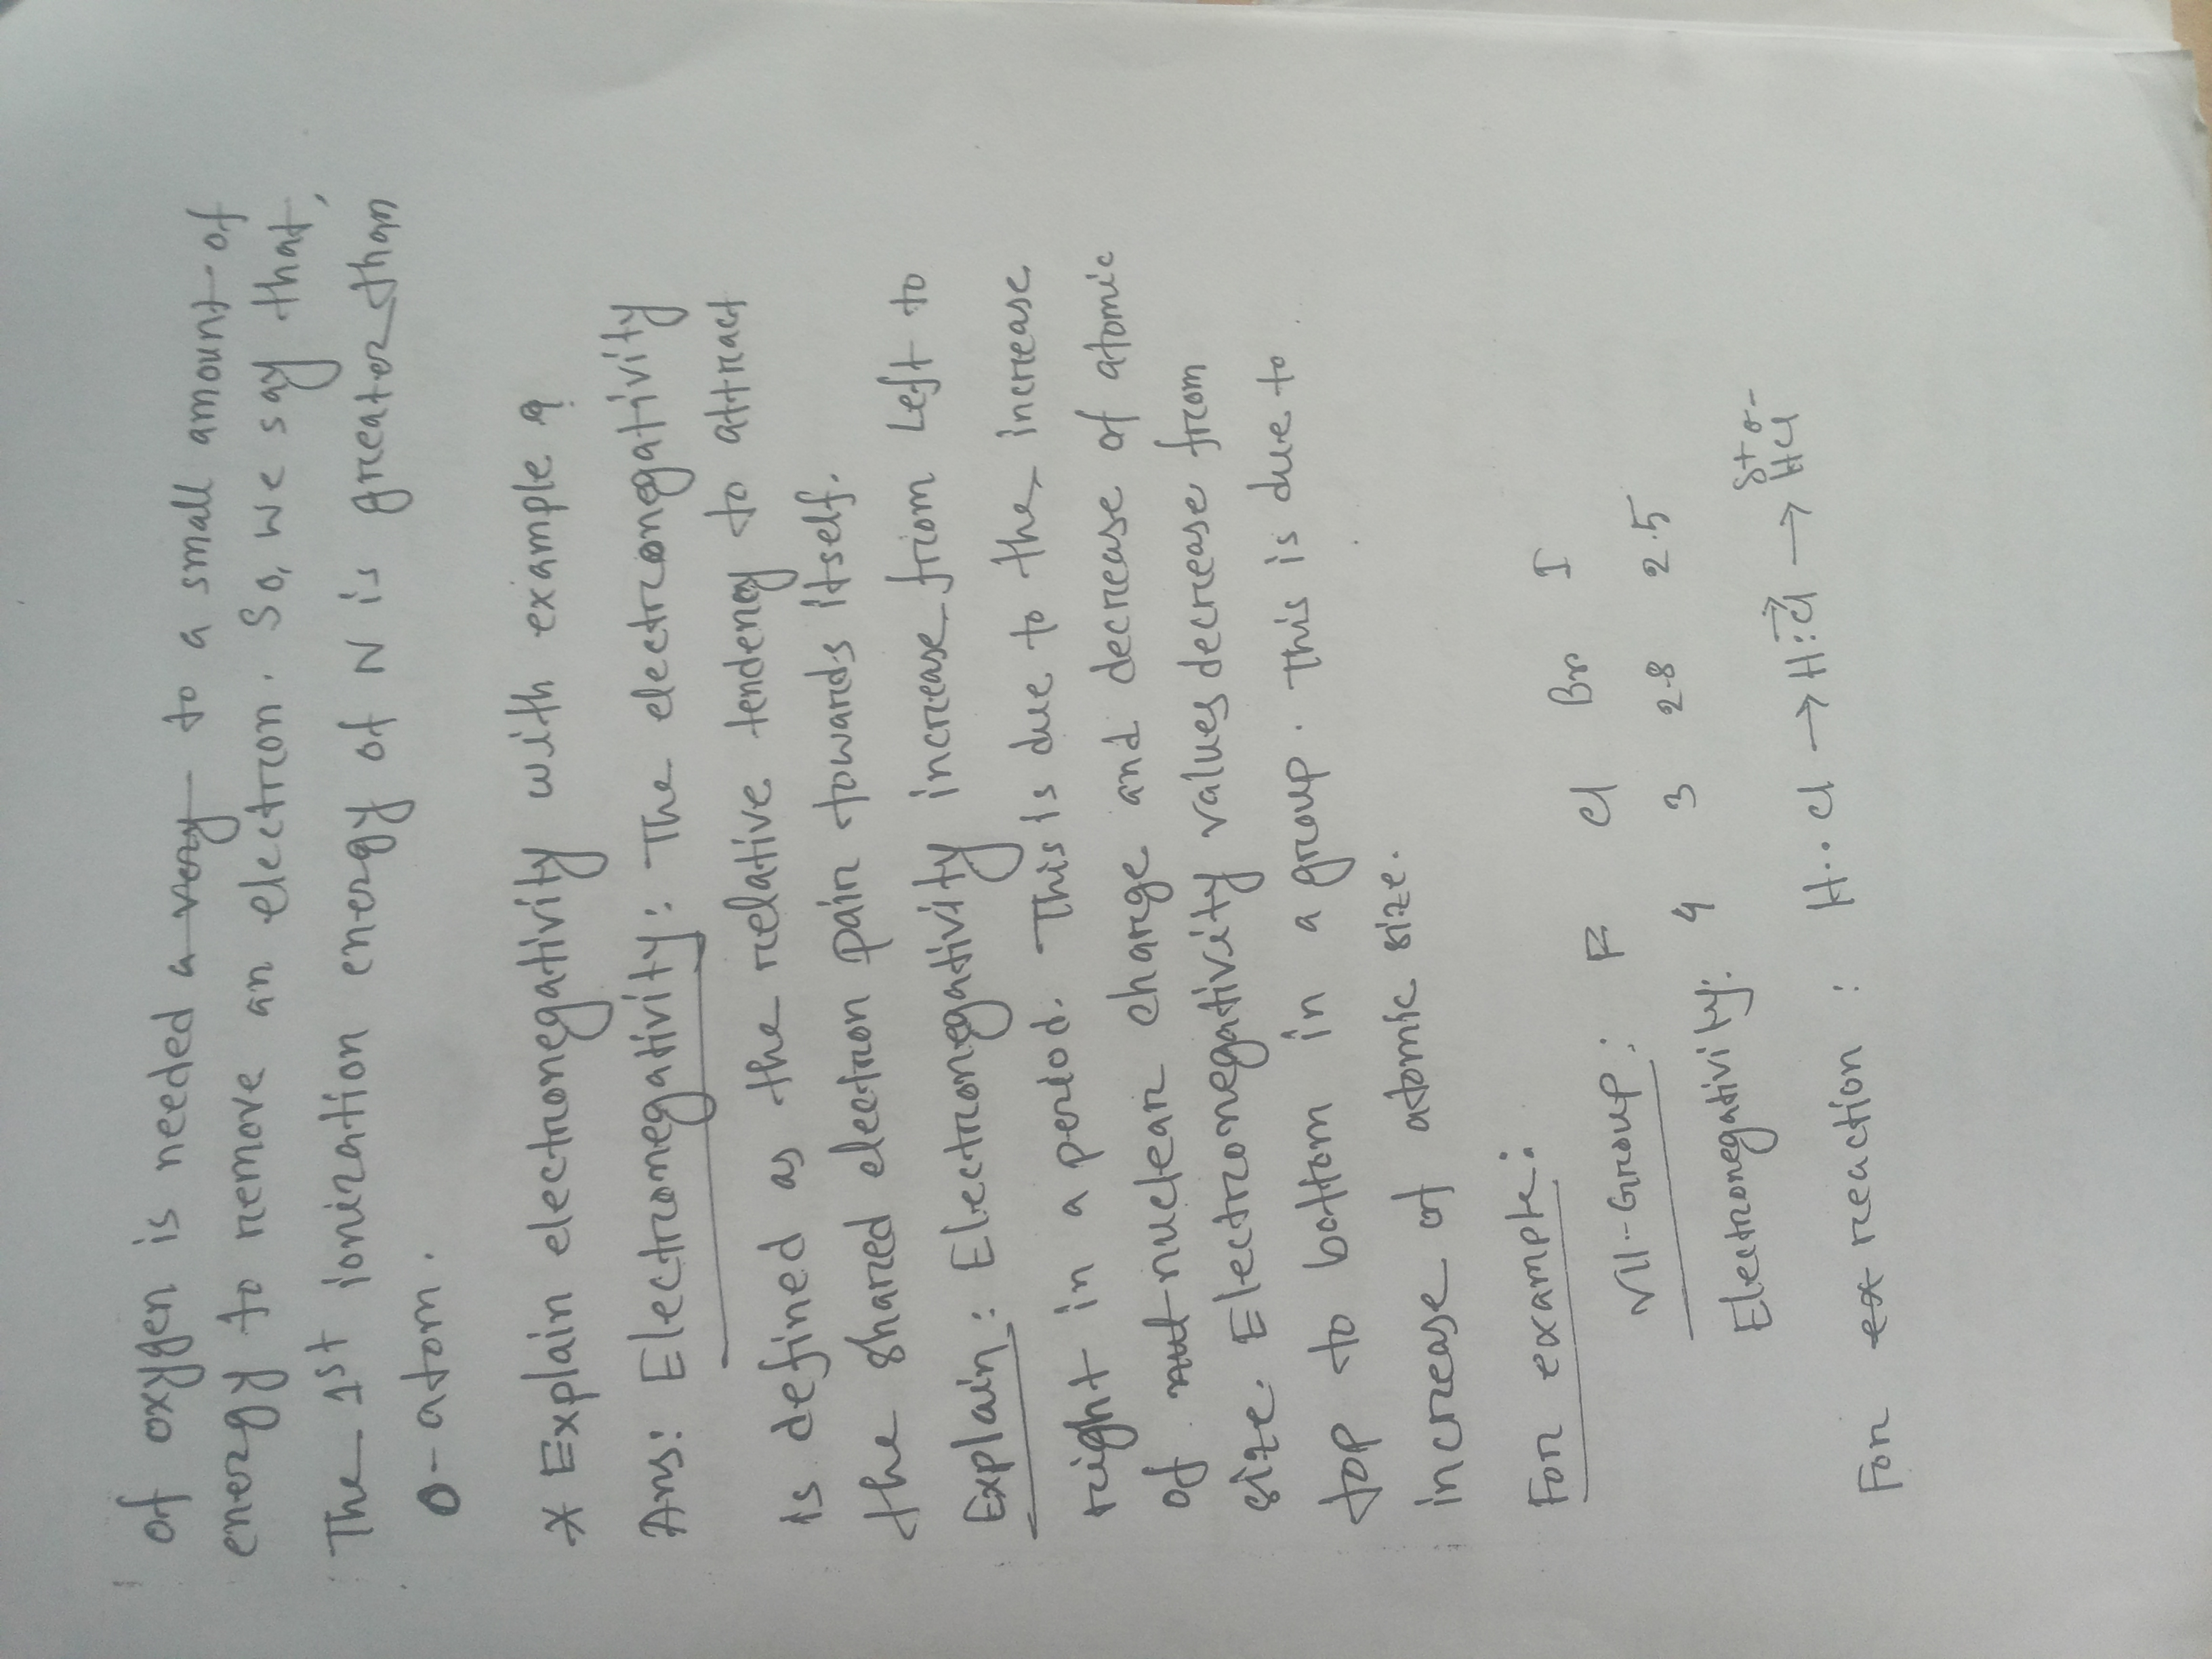 of oxygen is needed a very to a small amount of
energy to remove an electron. So, we say that,
The 1st ionization energy of N is greater than
O-atom.
* Explain electronegativity with example?
Ans: Electronegativity: The electronegativity
is defined as the relative tendency to attract
the shared electron pair towards itself.
Explain: Electronegativity increase from Left to
right in a period. This is due to the increase
of nuclear charge and decrease of atomic
size. Electronegativity values decrease from
top to bottom in a group. This is due to
increase of atomic size.
For example:
VII-Group: F Cl Br I
Electronegativity: 4 3 2.8 2.5
For ex reaction: H..Cl → H:Cl → HCl δ+ δ-